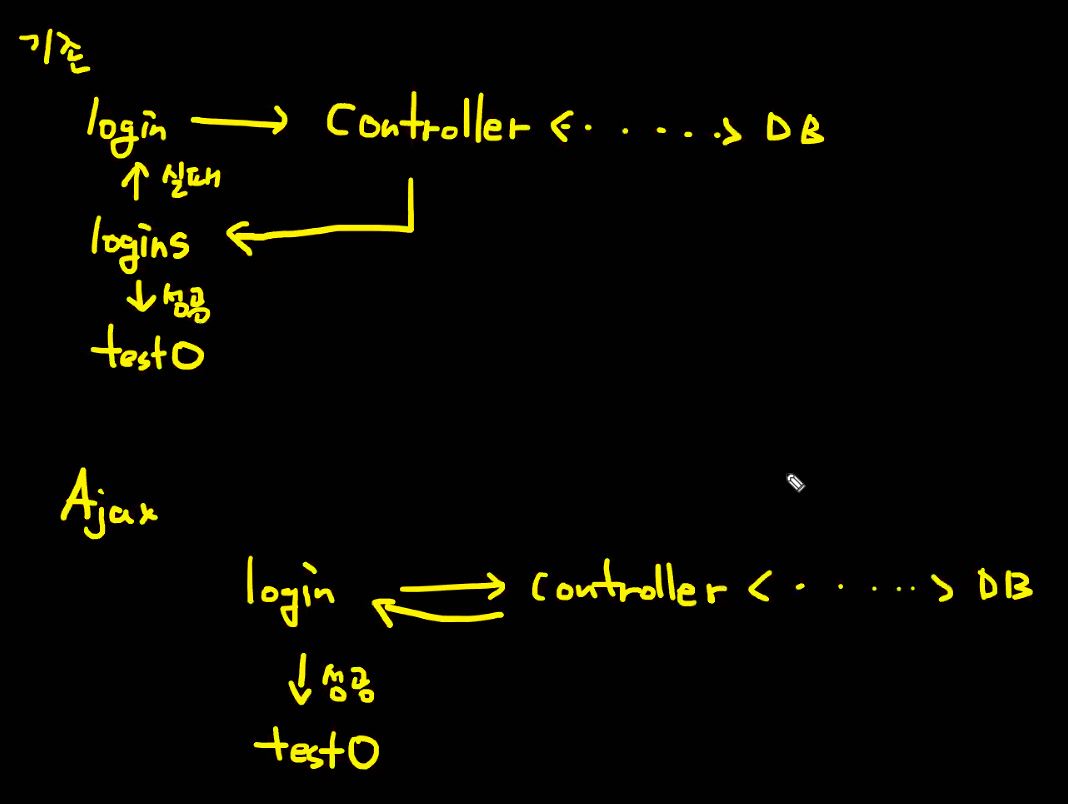 기존
login → Controller <·····> DB
↑ 실패
logins ←
↓ 성공
test0
Ajax
login → Controller <·····> DB
←
↓ 성공
test0